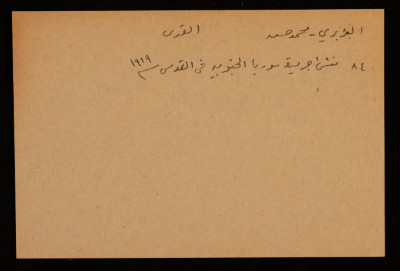 البديري - محمد حسن القدس
٨٤ منشئ جريدة سوريا الجنوبية في القدس سنة ١٩١٩